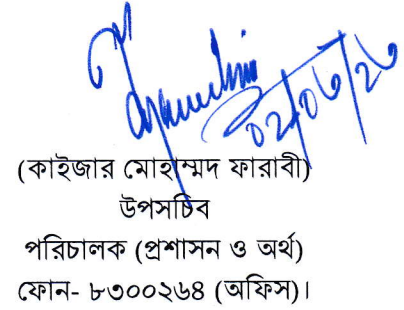 ০২/০৬/২৬
(কাইজার মোহাম্মদ ফারাবী)
উপসচিব
পরিচালক (প্রশাসন ও অর্থ)
ফোন- ৮৩০০২৬৪ (অফিস)।